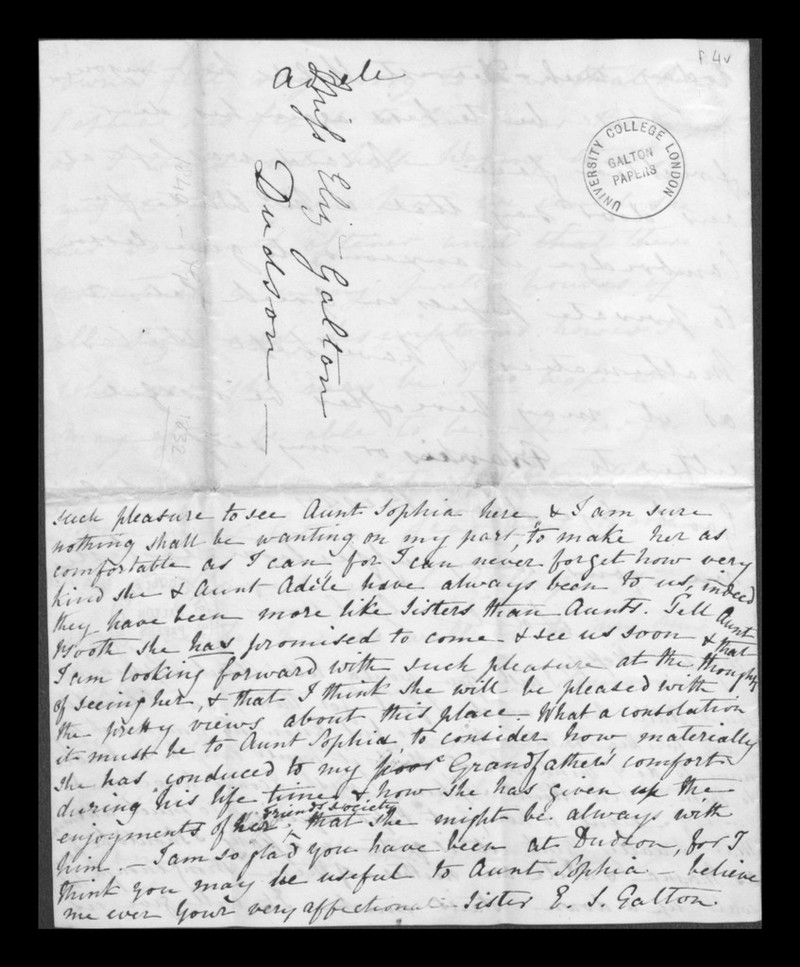 f 4v
Adele
Miss Eliz Galton
Dudson
UNIVERSITY COLLEGE LONDON
GALTON
PAPERS
1832
such pleasure to see Aunt Sophia here, & I am sure
nothing shall be wanting on my part, to make her as
comfortable as I can for I can never forget how very
kind she & Aunt Adèle have always been to us, indeed
they have been more like Sisters than Aunts. Tell Aunt
Booth she has promised to come & see us soon & that
I am looking forward with such pleasure at the thoughts
of seeing her, & that I think she will be pleased with
the pretty views about this place. What a consolation
it must be to Aunt Sophia, to consider how materially
she has conduced to my poor Grandfather's comfort
during his life time & how she has given up the
enjoyments of her friends society, that she might be always with
him. – I am so glad you have been at Dudson, for I
think you may be useful to Aunt Sophia – believe
me ever your very affectionate Sister E. S. Galton.